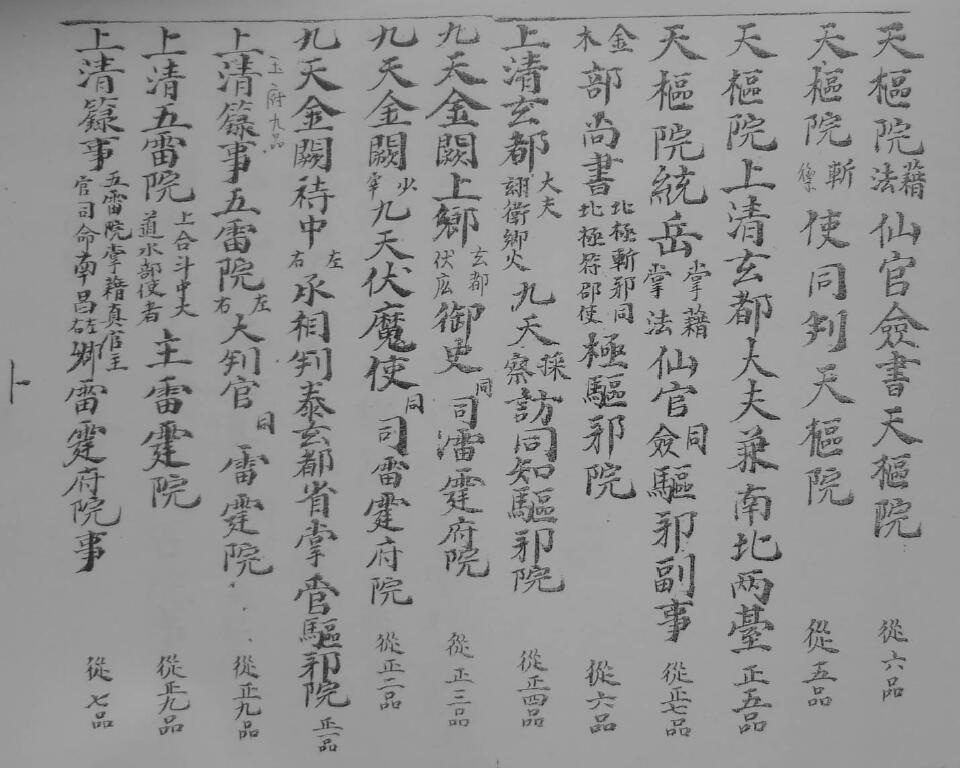 天樞院籍法仙官僉書天樞院 從六品
天樞院斬使同判天樞院 從五品
天樞院上清玄都大夫兼南北两臺 正五品
天樞院統岳掌籍掌法仙官同僉驅邪副事 從正七品
金木部尚書北極斬邪同北極符部使極驅邪院 從六品
上清玄都大夫翊衛鄉火九天採察訪同知驅邪院 從正四品
九天金闕上鄉玄都伏広御史同司雷霆府院 從正三品
九天金闕少宰九天伏魔使同司雷霆府院 從正二品
九天金闕待中左右承相判泰玄都省掌管驅邪院 正一品
玉府九品
上清籙事五雷院左右大判官同雷霆院 從正九品
上清五雷院上合斗中大道水部使者主雷霆院 從正九品
上清籙事五雷院掌籍真官主官司命南昌左卿雷霆府院事 從七品